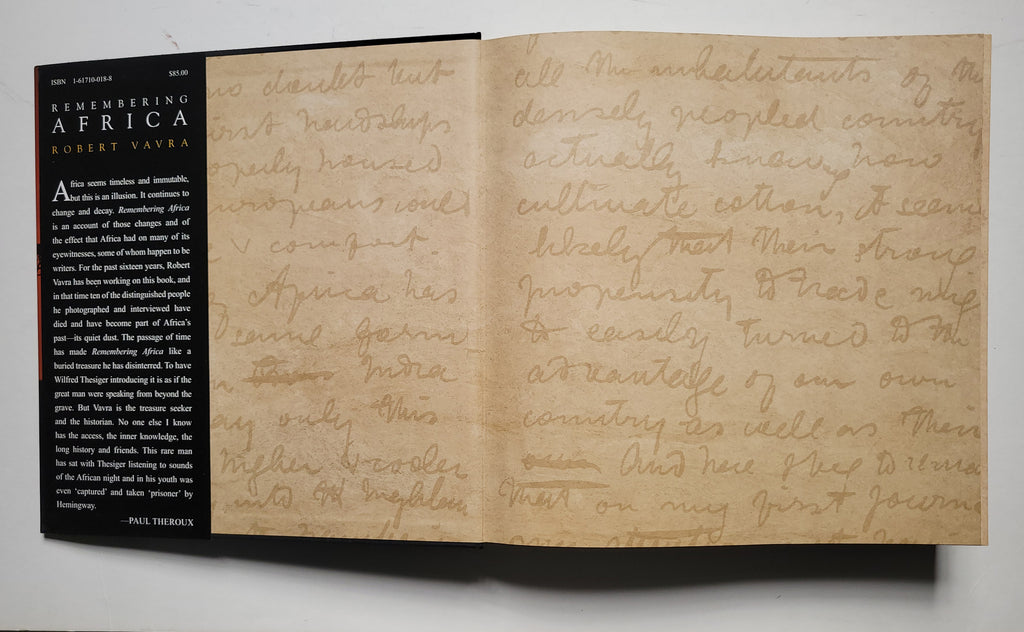 ISBN 1-61710-018-8 $85.00
REMEMBERING
AFRICA
ROBERT VAVRA
Africa seems timeless and immutable,
but this is an illusion. It continues to
change and decay. Remembering Africa
is an account of those changes and of
the effect that Africa had on many of its
eyewitnesses, some of whom happen to be
writers. For the past sixteen years, Robert
Vavra has been working on this book, and
in that time ten of the distinguished people
he photographed and interviewed have
died and have become part of Africa's
past—its quiet dust. The passage of time
has made Remembering Africa like a
buried treasure he has disinterred. To have
Wilfred Thesiger introducing it is as if the
great man were speaking from beyond the
grave. But Vavra is the treasure seeker
and the historian. No one else I know
has the access, the inner knowledge, the
long history and friends. This rare man
has sat with Thesiger listening to sounds
of the African night and in his youth was
even 'captured' and taken 'prisoner' by
Hemingway.
—PAUL THEROUX
no doubt but
first hardships
properly housed
Europeans could
comfort
Africa has
same form
India
only this
higher & cooler
into
all the inhabitants of the
densely peopled country
actually know how
cultivate cotton, it seems
likely that their strong
propensity to trade mig
to easily turned to the
advantage of our own
country as well as their
own And here I beg to rema
that on my first journ